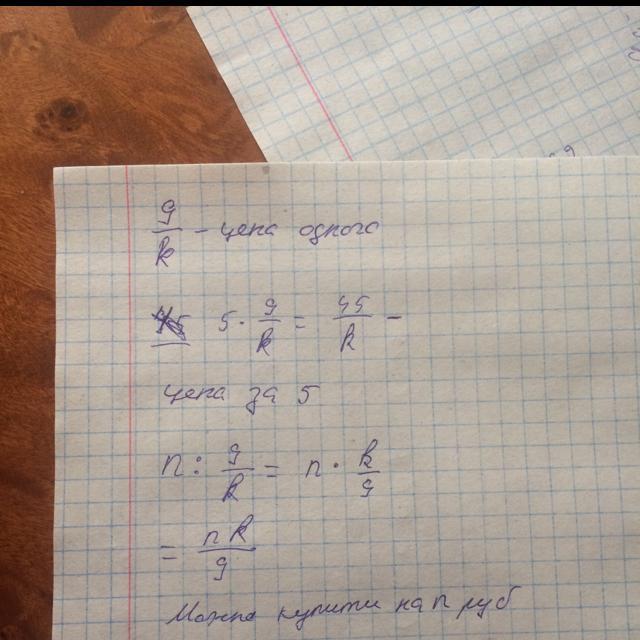 9/k - цена одного
5 · 9/k = 45/k -
цена за 5
n : 9/k = n · k/9
= nk/9
Можно купити на n руб